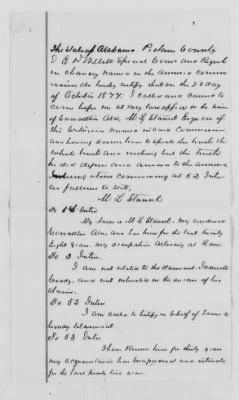 The State of Alabama Pickens County
I E D Willett Special Com and Regist
in chancery named in the annexed Comm
ission do hereby certify that on the 28 day
of October 1877. I called and caused to
come before me at my law office in the town
of Carrollton Ala, M. L. Stansel Esquire of
the witness named in said Commission
and having sworn him to speak the truth the
whole truth and nothing but the truth
he did depose and answer to the annexed
Interrogatories commencing at 52 Int
as follows to wit,
M L Stansel
To 1st Inter
My name is M L Stansel. my residence
Carrollton Ala. and has been for the last twenty
Eight years. my occupation Attorney at Law.
To 2 Inter
I am not related to the claimant Samuel
Cody, and not interested in the success of his
claim.
To 52 Inter
I am called to testify in behalf of Samuel
Cody Claimant
To 53 Inter
I have known him for thirty years
my acquaintance has been personal and intimate
for the last twenty five years.